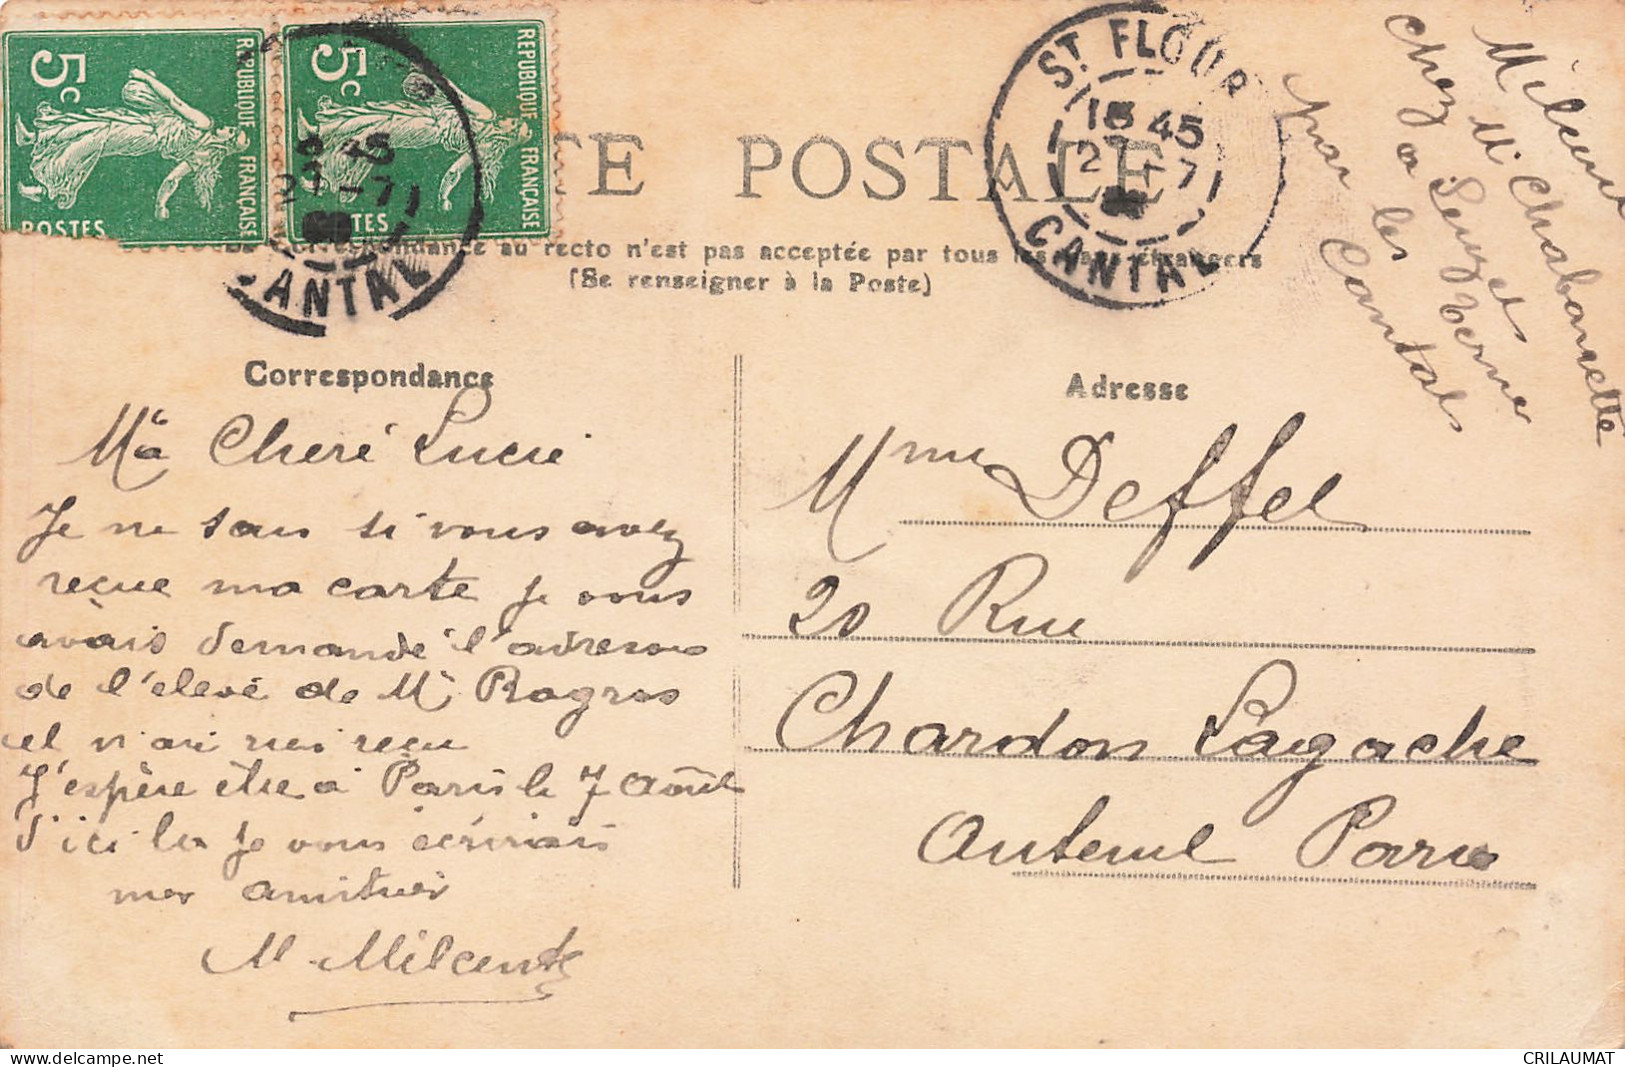 5c
REPUBLIQUE FRANÇAISE
POSTES
5c
REPUBLIQUE FRANÇAISE
TES
45
27 -7
CANTAL
TE POSTALE
ST. FLOUR
18 45
2 -7
CANTAL
La correspondance au recto n'est pas acceptée par tous les pays étrangers
(Se renseigner à la Poste)
Milcent
chez M. Chabanette
a
les
par Cantal
Correspondance
Adresse
Ma Cheré Lucie
Je ne sais si vous avez
reçue ma carte je vous
avais demandé l'adresse
de l'elevé de Mr Ragros
et n'ai rien reçu
J'espère être a Paris le 7 Août
d'ici la je vous écrirais
mes amitiés
M. Milcent
Mme Deffel
20 Rue
Chardon Lagache
Auteuil Paris
CRILAUMAT